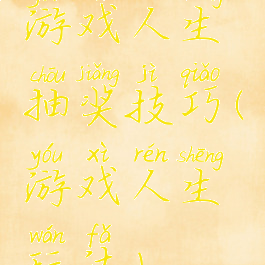 游戏人生
chōu jiǎng jì qiǎo
抽奖技巧(
yóu xì rén shēng
游戏人生
wán fǎ
玩法)